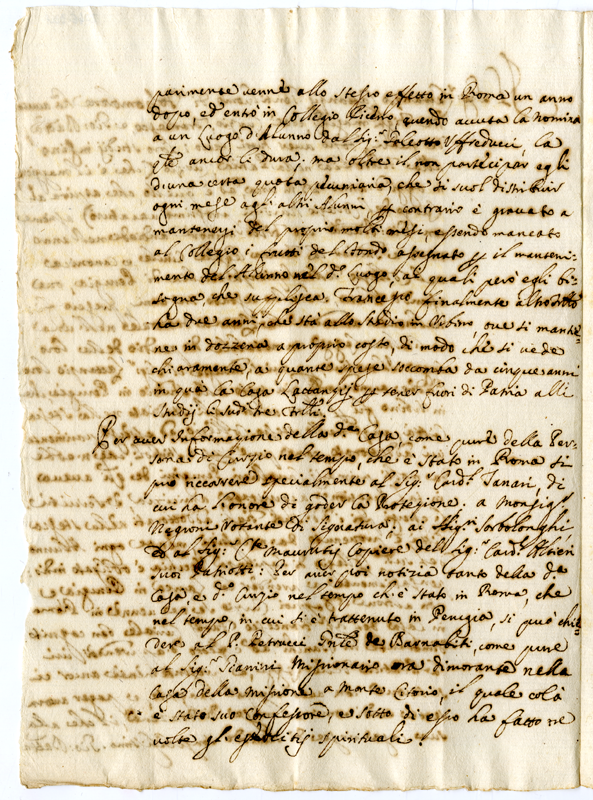 parimente venne allo stesso effetto in Roma un anno
dopo, ed entrò in Collegio quando avuta la nomina
a un Luogo d'Alunno dal Sig.r Uffreducci, la
q.le ancor li dura; ma oltre il non partecipar egli
d'una certa quota pecuniaria, che si suol distribuir
ogni mese agl'altri Alunni p contrario è gravato a
mantenersi del proprio molti mesi, essendo mancato
al Collegio i frutti del fondo assegnato p il manteni-
mento dell'Alunno nel d.o Luogo, ai quali però egli bi-
sogna, che supplisca. Franc.o finalmente
ha due anni, che stà allo studio in Urbino, ove si mantie-
ne in dozzena a proprio costo, di modo che si vede
chiaramente, a quante spese soccomba da cinque anni
in qua la Casa p tener fuori di Patria alli
Studij li sud.i tre
Per aver Informazione della d.a Casa, come pure della Per-
sona di Curzio nel tempo, che è stato in Roma si
può riccorere specialmente al Sig.r Card.l Tanari, di
cui ha l'onore di goder la Protezione: a Monsig.r
Negroni Votante di Signatura; ai Sig.ri Sorbolonghi,
ed al Sig.r C.te Mauruzij Copiere del Sig.r Card.l Altieri
suoi Patriotti: Per aver poi notizia tanto della d.a
Casa e d.o Curzio nel tempo ch'è stato in Roma, che
nel tempo, in cui si è trattenuto in Perugia, si può chie-
der al P. Petrucci de Barnabiti, come pure
al Sig.r Missionario, ora dimorante nella
Casa della Missione a Monte Citorio, il quale colà
è stato suo Confessore, e sotto di esso ha fatto tre
volte gl'esercitij spirituali.